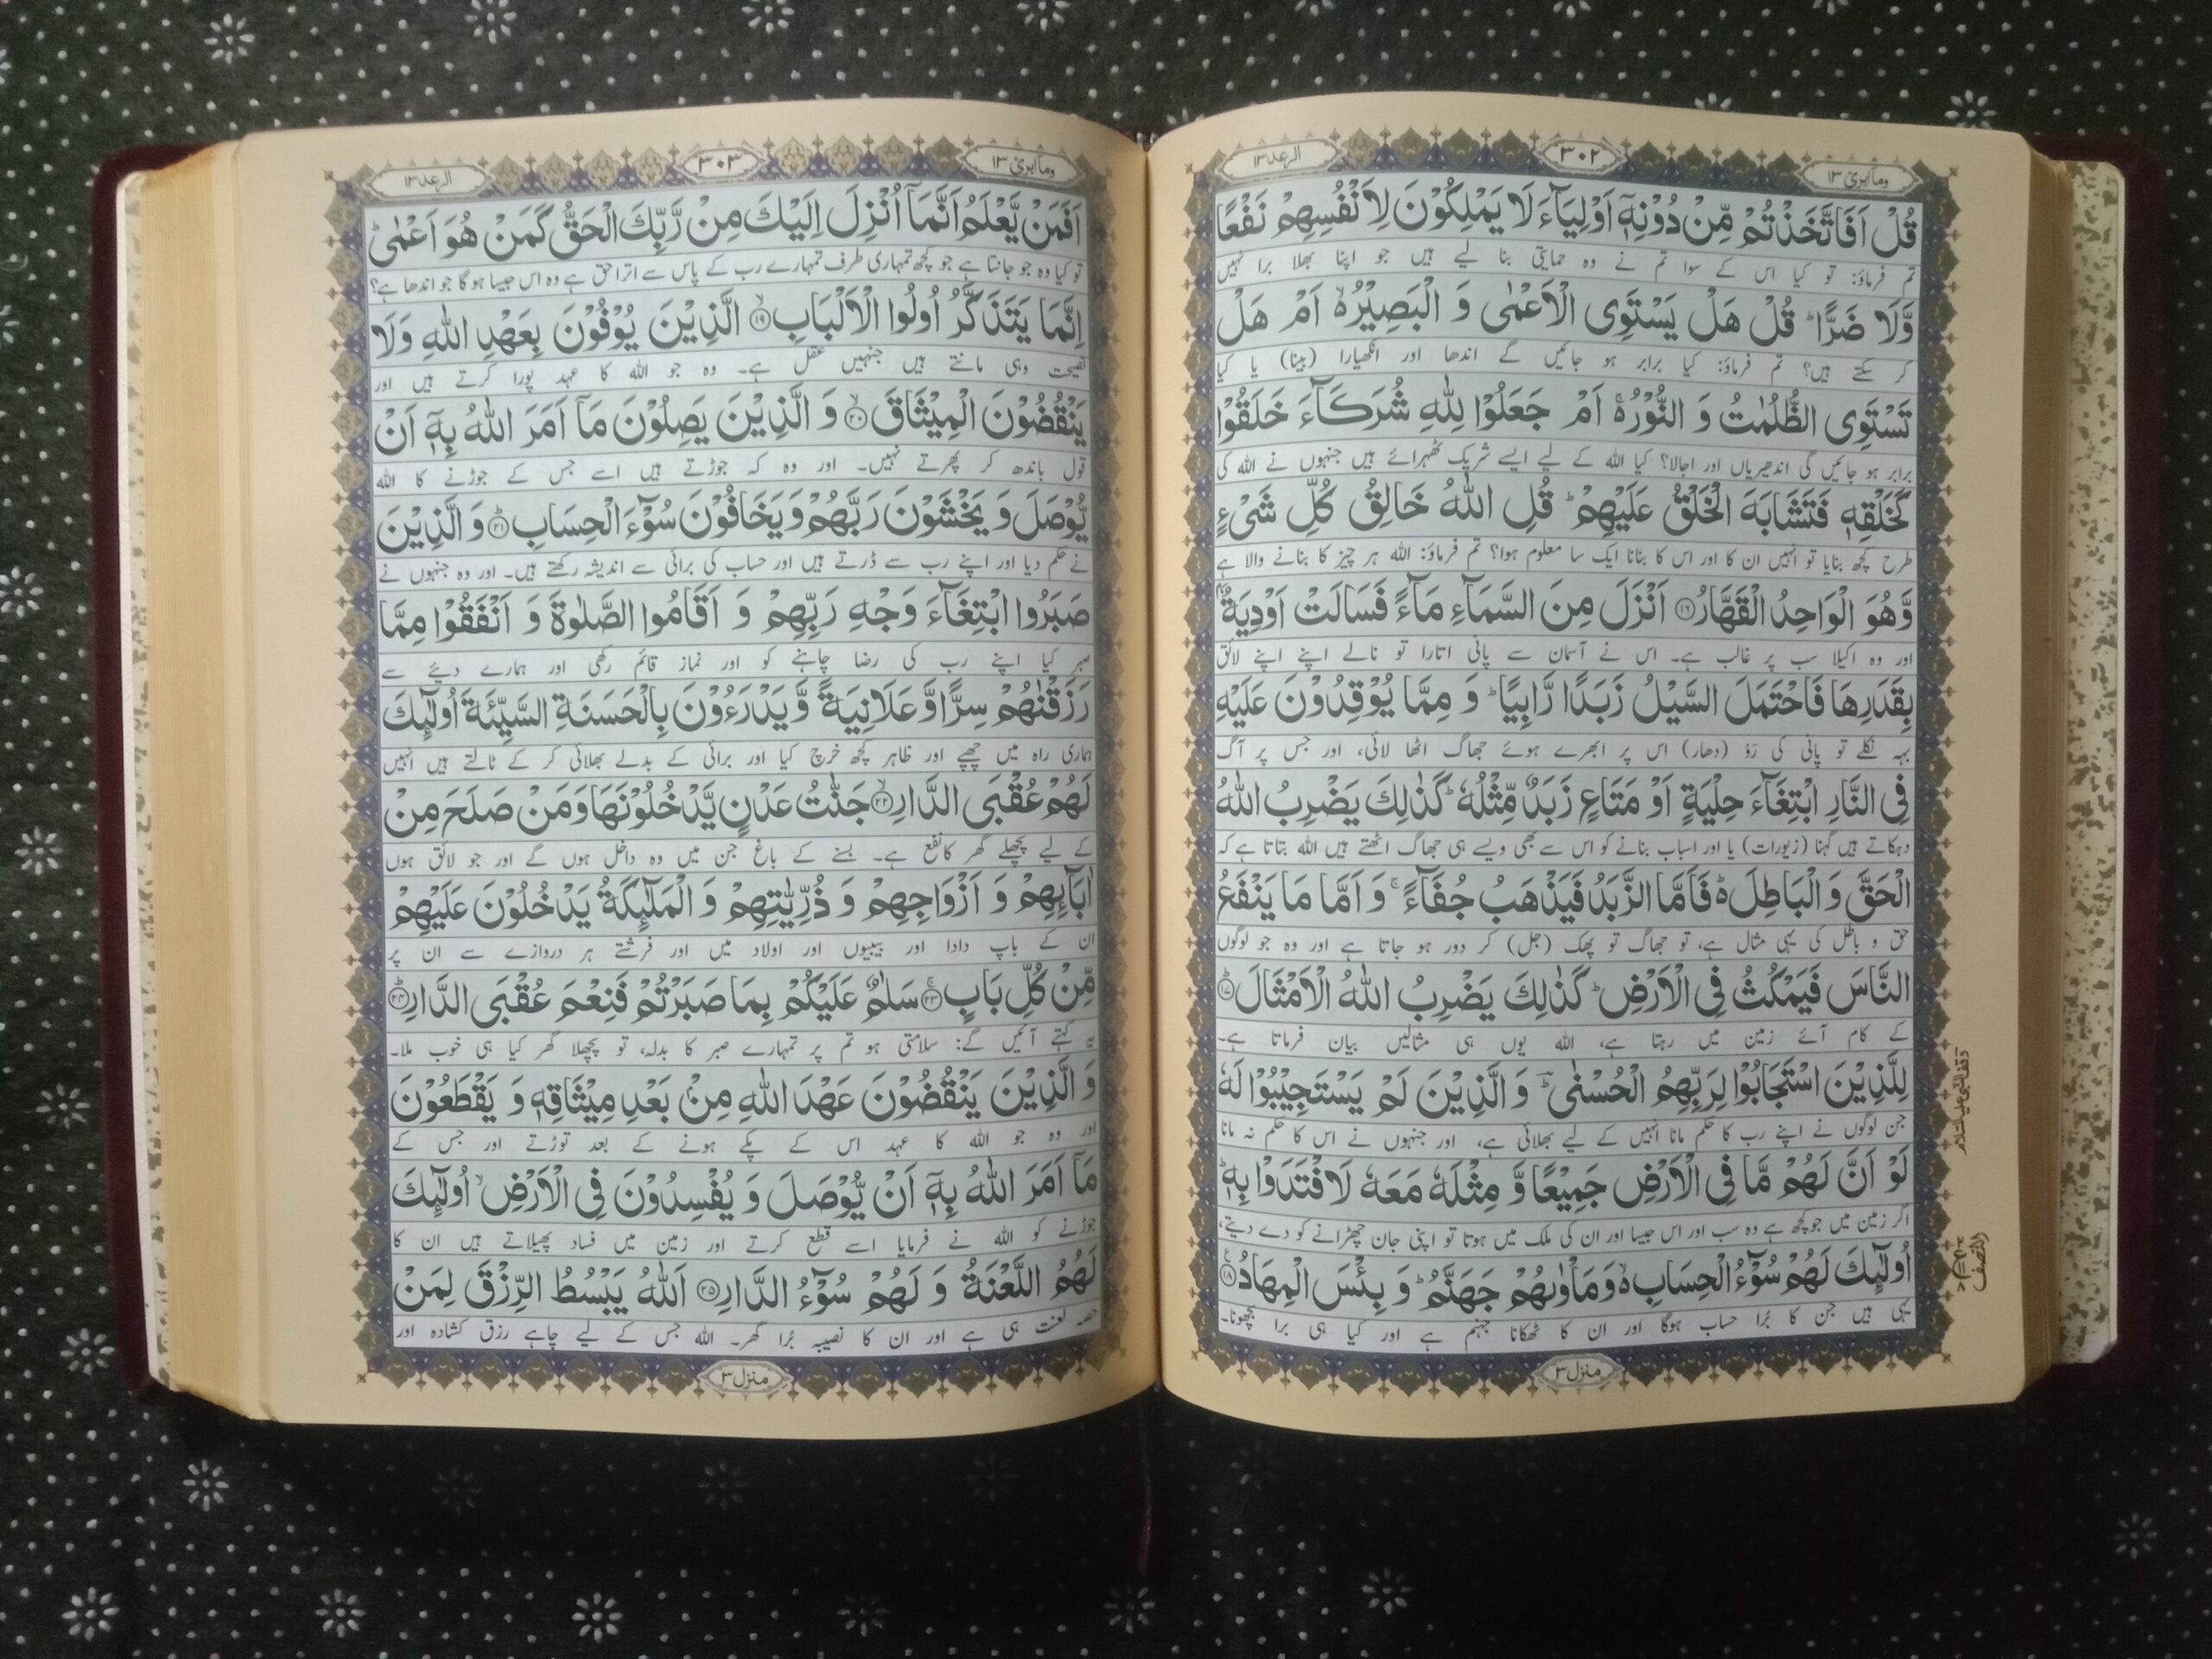 وما ابرئ ١٣
٣٠٢
الرعد ١٣
قُلْ اَفَاتَّخَذْتُمْ مِّنْ دُوْنِهٖۤ اَوْلِيَآءَ لَا يَمْلِكُوْنَ لِاَنْفُسِهِمْ نَفْعًا
تم فرماؤ: تو کیا اس کے سوا تم نے وہ حمایتی بنا لیے ہیں جو اپنا بھلا برا نہیں
وَّلَا ضَرًّا ؕ قُلْ هَلْ يَسْتَوِى الْاَعْمٰى وَ الْبَصِيْرُ ۙ۬ اَمْ هَلْ
کر سکتے ہیں؟ تم فرماؤ: کیا برابر ہو جائیں گے اندھا اور انکھیارا (بینا) یا کیا
تَسْتَوِى الظُّلُمٰتُ وَ النُّوْرُ ۚ۬ اَمْ جَعَلُوْا لِلّٰهِ شُرَكَآءَ خَلَقُوْا
برابر ہو جائیں گی اندھیریاں اور اجالا؟ کیا اللہ کے لیے ایسے شریک ٹھہرائے ہیں جنہوں نے اللہ کی
كَخَلْقِهٖ فَتَشَابَهَ الْخَلْقُ عَلَيْهِمْ ؕ قُلِ اللّٰهُ خَالِقُ كُلِّ شَىْءٍ
طرح کچھ بنایا تو انہیں ان کا اور اس کا بنانا ایک سا معلوم ہوا؟ تم فرماؤ: اللہ ہر چیز کا بنانے والا ہے
وَّهُوَ الْوَاحِدُ الْقَهَّارُ ۝۱۶ اَنْزَلَ مِنَ السَّمَآءِ مَآءً فَسَالَتْ اَوْدِيَةٌۢ
اور وہ اکیلا سب پر غالب ہے۔ اس نے آسمان سے پانی اتارا تو نالے اپنے اپنے لائق
بِقَدَرِهَا فَاحْتَمَلَ السَّيْلُ زَبَدًا رَّابِيًا ؕ وَ مِمَّا يُوْقِدُوْنَ عَلَيْهِ
بہہ نکلے تو پانی کی رَو (دھار) اس پر ابھرے ہوئے جھاگ اٹھا لائی، اور جس پر آگ
فِى النَّارِ ابْتِغَآءَ حِلْيَةٍ اَوْ مَتَاعٍ زَبَدٌ مِّثْلُهٗ ؕ كَذٰلِكَ يَضْرِبُ اللّٰهُ
دہکاتے ہیں گہنا (زیورات) یا اور اسباب بنانے کو اس سے بھی ویسے ہی جھاگ اٹھتے ہیں اللہ بتاتا ہے کہ
الْحَقَّ وَ الْبَاطِلَ ۬ؕ فَاَمَّا الزَّبَدُ فَيَذْهَبُ جُفَآءً ۚ وَ اَمَّا مَا يَنْفَعُ
حق و باطل کی یہی مثال ہے، تو جھاگ تو پھک (جل) کر دور ہو جاتا ہے اور وہ جو لوگوں
النَّاسَ فَيَمْكُثُ فِى الْاَرْضِ ؕ كَذٰلِكَ يَضْرِبُ اللّٰهُ الْاَمْثَالَ ؕ۝۱۷
کے کام آئے زمین میں رہتا ہے، اللہ یوں ہی مثالیں بیان فرماتا ہے۔
لِلَّذِيْنَ اسْتَجَابُوْا لِرَبِّهِمُ الْحُسْنٰى ؕ وَ الَّذِيْنَ لَمْ يَسْتَجِيْبُوْا لَهٗ
جن لوگوں نے اپنے رب کا حکم مانا انہیں کے لیے بھلائی ہے، اور جنہوں نے اس کا حکم نہ مانا
لَوْ اَنَّ لَهُمْ مَّا فِى الْاَرْضِ جَمِيْعًا وَّ مِثْلَهٗ مَعَهٗ لَافْتَدَوْا بِهٖ ؕ
اگر زمین میں جو کچھ ہے وہ سب اور اس جیسا اور ان کی ملک میں ہوتا تو اپنی جان چھڑانے کو دے دیتے،
اُولٰٓئِكَ لَهُمْ سُوْٓءُ الْحِسَابِ ۬ۙ وَ مَاْوٰىهُمْ جَهَنَّمُ ؕ وَ بِئْسَ الْمِهَادُ ۝۱۸
یہی ہیں جن کا بُرا حساب ہوگا اور ان کا ٹھکانا جہنم ہے اور کیا ہی برا بچھونا۔
منزل ٣
وقف النبی علیہ السلام
النصف
وما ابرئ ١٣
٣٠٣
الرعد ١٣
اَفَمَنْ يَّعْلَمُ اَنَّمَاۤ اُنْزِلَ اِلَيْكَ مِنْ رَّبِّكَ الْحَقُّ كَمَنْ هُوَ اَعْمٰى ؕ
تو کیا وہ جو جانتا ہے جو کچھ تمہاری طرف تمہارے رب کے پاس سے اترا حق ہے وہ اس جیسا ہوگا جو اندھا ہے؟
اِنَّمَا يَتَذَكَّرُ اُولُوا الْاَلْبَابِ ۙ۝۱۹ الَّذِيْنَ يُوْفُوْنَ بِعَهْدِ اللّٰهِ وَلَا
نصیحت وہی مانتے ہیں جنہیں عقل ہے۔ وہ جو اللہ کا عہد پورا کرتے ہیں اور
يَنْقُضُوْنَ الْمِيْثَاقَ ۙ۝۲۰ وَ الَّذِيْنَ يَصِلُوْنَ مَاۤ اَمَرَ اللّٰهُ بِهٖۤ اَنْ
قول باندھ کر پھرتے نہیں۔ اور وہ کہ جوڑتے ہیں اسے جس کے جوڑنے کا اللہ
يُّوْصَلَ وَ يَخْشَوْنَ رَبَّهُمْ وَ يَخَافُوْنَ سُوْٓءَ الْحِسَابِ ؕ۝۲۱ وَ الَّذِيْنَ
نے حکم دیا اور اپنے رب سے ڈرتے ہیں اور حساب کی برائی سے اندیشہ رکھتے ہیں۔ اور وہ جنہوں نے
صَبَرُوا ابْتِغَآءَ وَجْهِ رَبِّهِمْ وَ اَقَامُوا الصَّلٰوةَ وَ اَنْفَقُوْا مِمَّا
صبر کیا اپنے رب کی رضا چاہنے کو اور نماز قائم رکھی اور ہمارے دیئے سے
رَزَقْنٰهُمْ سِرًّا وَّ عَلَانِيَةً وَّ يَدْرَءُوْنَ بِالْحَسَنَةِ السَّيِّئَةَ اُولٰٓئِكَ
ہماری راہ میں چھپے اور ظاہر کچھ خرچ کیا اور برائی کے بدلے بھلائی کر کے ٹالتے ہیں انہیں
لَهُمْ عُقْبَى الدَّارِ ۙ۝۲۲ جَنّٰتُ عَدْنٍ يَّدْخُلُوْنَهَا وَ مَنْ صَلَحَ مِنْ
کے لیے پچھلے گھر کا نفع ہے۔ بسنے کے باغ جن میں وہ داخل ہوں گے اور جو لائق ہوں
اٰبَآئِهِمْ وَ اَزْوَاجِهِمْ وَ ذُرِّيّٰتِهِمْ وَ الْمَلٰٓئِكَةُ يَدْخُلُوْنَ عَلَيْهِمْ
ان کے باپ دادا اور بیبیوں اور اولاد میں اور فرشتے ہر دروازے سے ان پر
مِّنْ كُلِّ بَابٍ ۚ۝۲۳ سَلٰمٌ عَلَيْكُمْ بِمَا صَبَرْتُمْ فَنِعْمَ عُقْبَى الدَّارِ ؕ۝۲۴
یہ کہتے آئیں گے: سلامتی ہو تم پر تمہارے صبر کا بدلہ، تو پچھلا گھر کیا ہی خوب ملا۔
وَ الَّذِيْنَ يَنْقُضُوْنَ عَهْدَ اللّٰهِ مِنْۢ بَعْدِ مِيْثَاقِهٖ وَ يَقْطَعُوْنَ
اور وہ جو اللہ کا عہد اس کے پکے ہونے کے بعد توڑتے اور جس کے
مَاۤ اَمَرَ اللّٰهُ بِهٖۤ اَنْ يُّوْصَلَ وَ يُفْسِدُوْنَ فِى الْاَرْضِ ۙ اُولٰٓئِكَ
جوڑنے کو اللہ نے فرمایا اسے قطع کرتے اور زمین میں فساد پھیلاتے ہیں ان کا
لَهُمُ اللَّعْنَةُ وَ لَهُمْ سُوْٓءُ الدَّارِ ۝۲۵ اَللّٰهُ يَبْسُطُ الرِّزْقَ لِمَنْ
حصہ لعنت ہی ہے اور ان کا نصیبہ بُرا گھر۔ اللہ جس کے لیے چاہے رزق کشادہ اور
منزل ٣